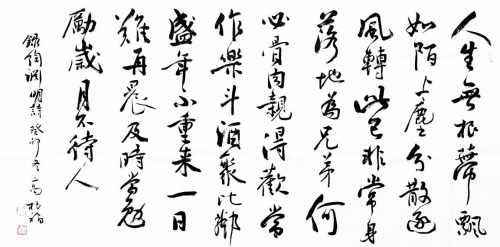 人生無根蒂飄
如陌上塵分散逐
風轉此已非常身
落地為兄弟何
必骨肉親得歡當
作樂斗酒聚比鄰
盛年不重来一日
難再晨及時當勉
勵歲月不待人
錄陶淵明詩癸卯冬高